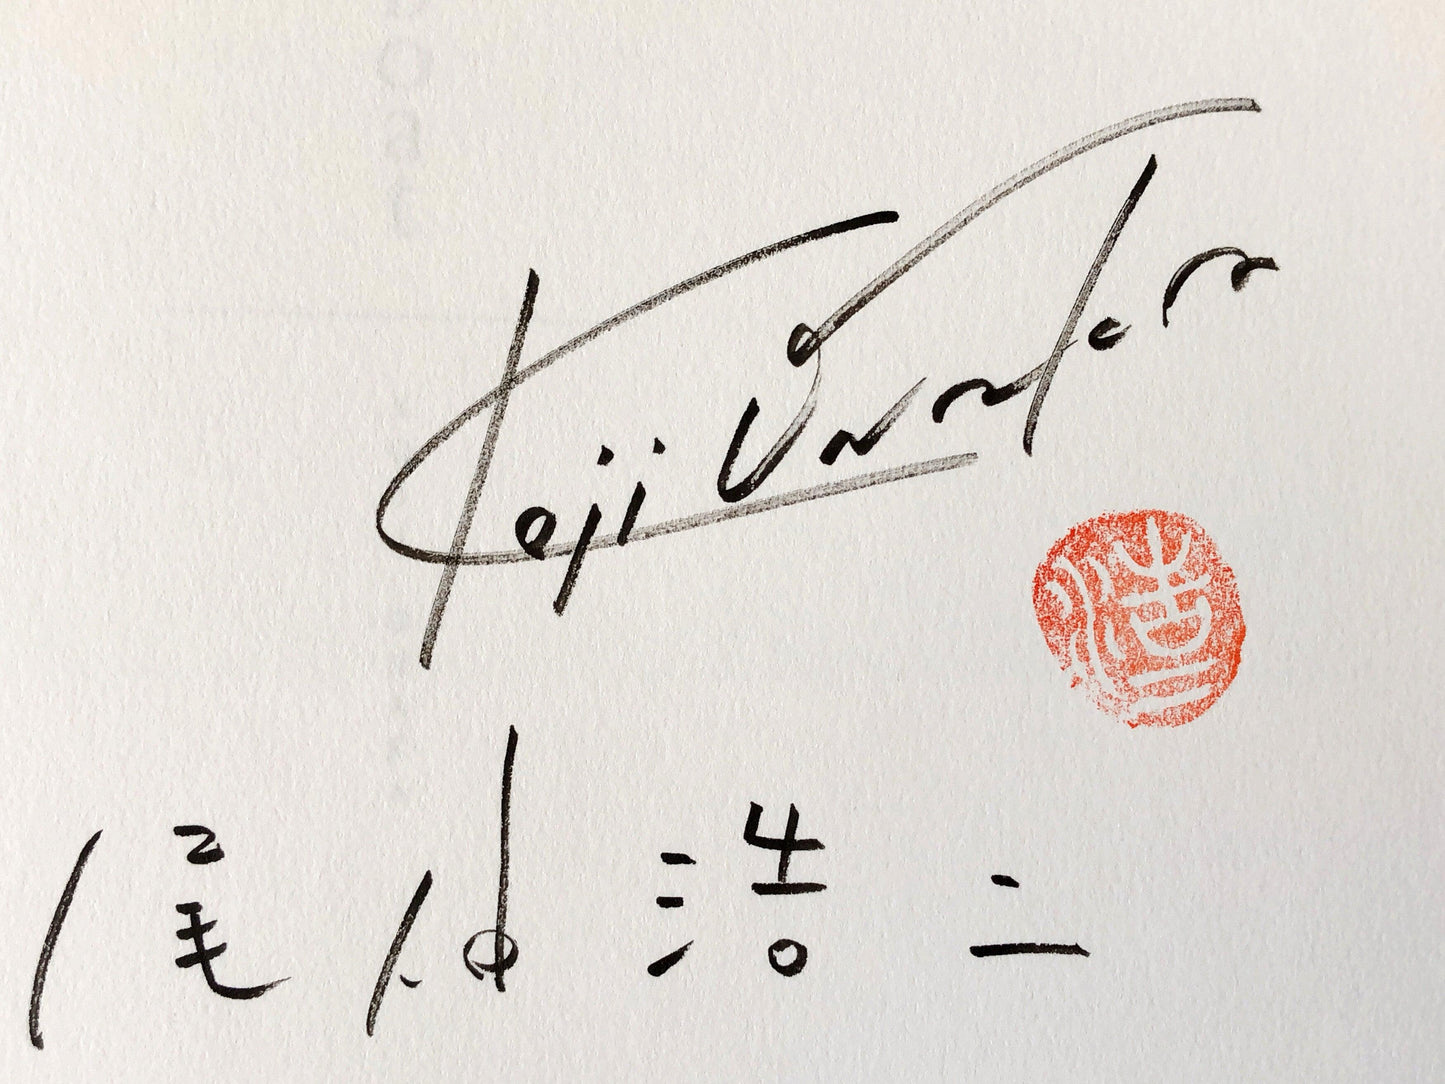 Koji Onaka
浩二
尾仲浩二